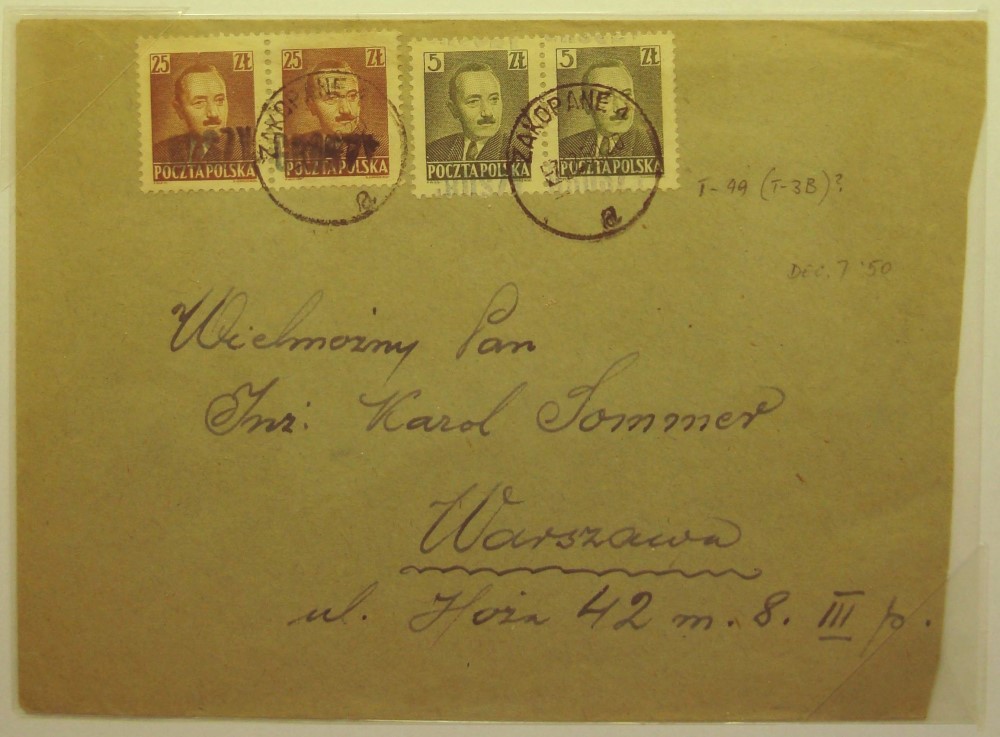 25 ZŁ 25 ZŁ 5 ZŁ 5 ZŁ
GROSZY
POCZTA POLSKA POCZTA POLSKA POCZTA POLSKA POCZTA POLSKA
ZAKOPANE
a
ZAKOPANE 4
a
T-49 (T-3B)?
DEC. 7 '50
Wielmożny Pan
Inż. Karol Sommer
Warszawa
ul. Hoża 42 m. 8. III p.